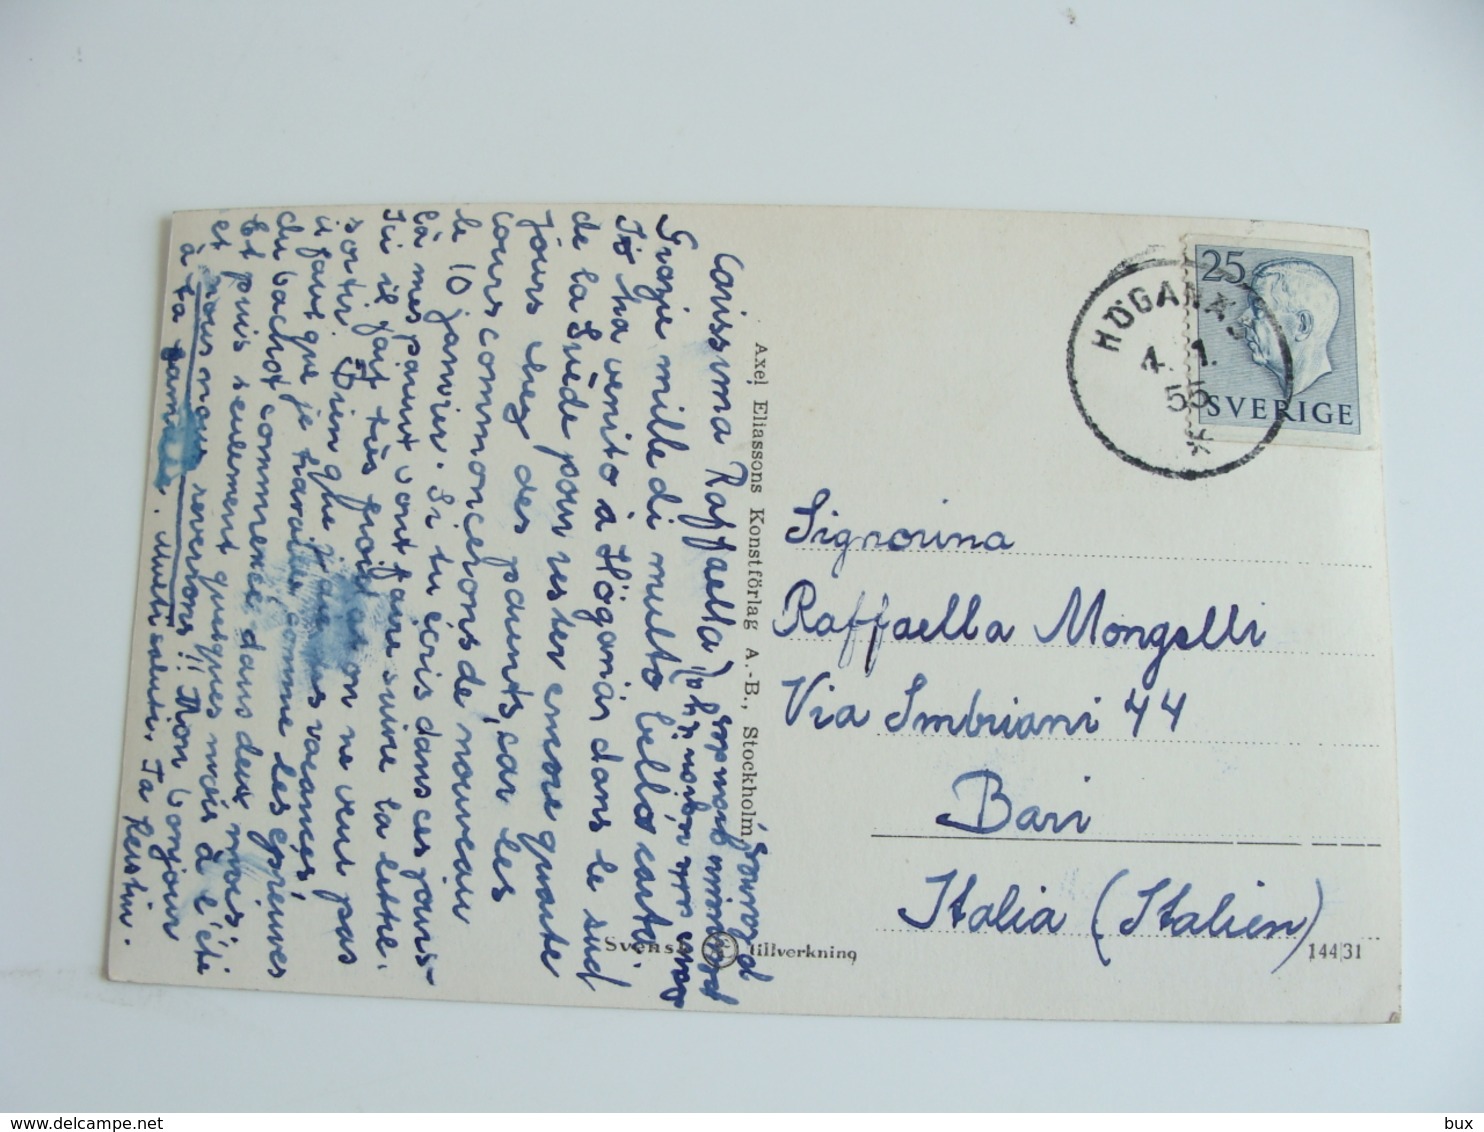 Carissima Raffaella,
Grazie mille di multo bello carto.
Io ha venito à Höganäs dans le sud
de la Suède pour rester encore quante
jours chez des parents, car les
cours commoncerons de nouveau
le 10 janvier. Si tu écris dans ces jours-
là mes parent vont faire suivre la lettre.
Ici il fait très froid et on ne veut pas
sortir. Bien que j'aie des vacances,
il faut que je travaille comme les épreuves
du bachot commencé dans deux mois.
Et puis seulement quelques mois à l'été
et nous nous reverrons!! Mon bonjour
à ta famille. Multi saluti, Ta Kerstin.
Axel Eliassons Konstförlag A.-B., Stockholm
Svensk tillverkning
25
SVERIGE
HÖGANÄS
4. 1.
55
Signorina
Raffaella Mongelli
Via Imbriani 44
Bari
Italia (Italien)
144/31
bux bux